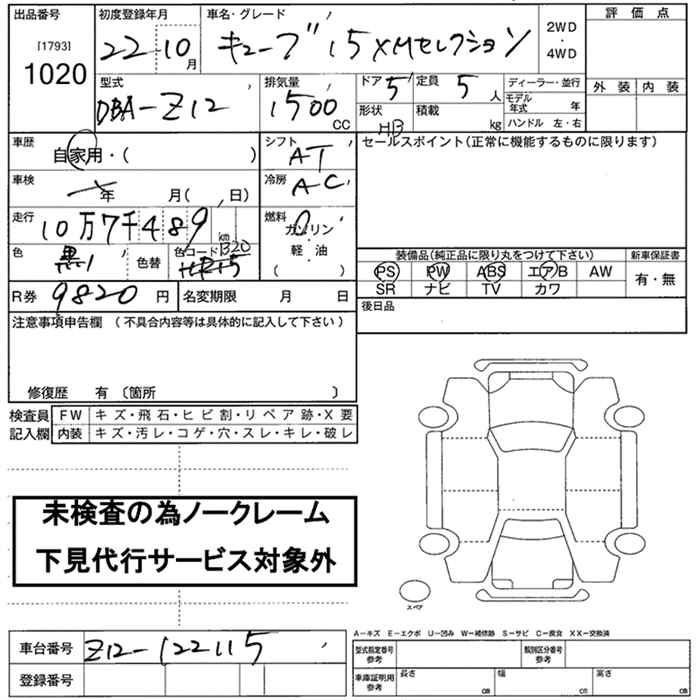 出品番号
[1793]
1020
初度登録年月
22-10月
車名・グレード
キューブ 15XMセレクション
2WD
・
4WD
評価点
外装 内装
型式
DBA-Z12
排気量
1500 CC
ドア 5
形状 HB
定員 5人
積載 kg
ディーラー・並行
モデル年式 年
ハンドル 左・右
車歴
自家用・( )
シフト
AT
セールスポイント(正常に機能するものに限ります)
車検
年 月( 、日)
冷房
AC
走行
10万7千489 km
燃料
ガソリン
・
軽・油
( )
色
黒
色替
色コード 1320
装備品(純正品に限り丸をつけて下さい)
新車保証書
PS PW ABS エアB AW
SR ナビ TV カワ
有・無
R券 9820円
名変期限 月 日
後日品
注意事項申告欄 (不具合内容等は具体的に記入して下さい)
修復歴 有 〔箇所 〕
検査員記入欄
FW キズ・飛石・ヒビ割・リペア跡・X要
内装 キズ・汚レ・コゲ・穴・スレ・キレ・破レ
未検査の為ノークレーム
下見代行サービス対象外
スペア
A−キズ E−エクボ U−凹み W−補修跡 S−サビ C−腐食 XX−交換済
車台番号 Z12-122115
登録番号
型式指定番号 参考
類別区分番号 参考
車庫証明用 参考
長さ cm 幅 cm 高さ cm